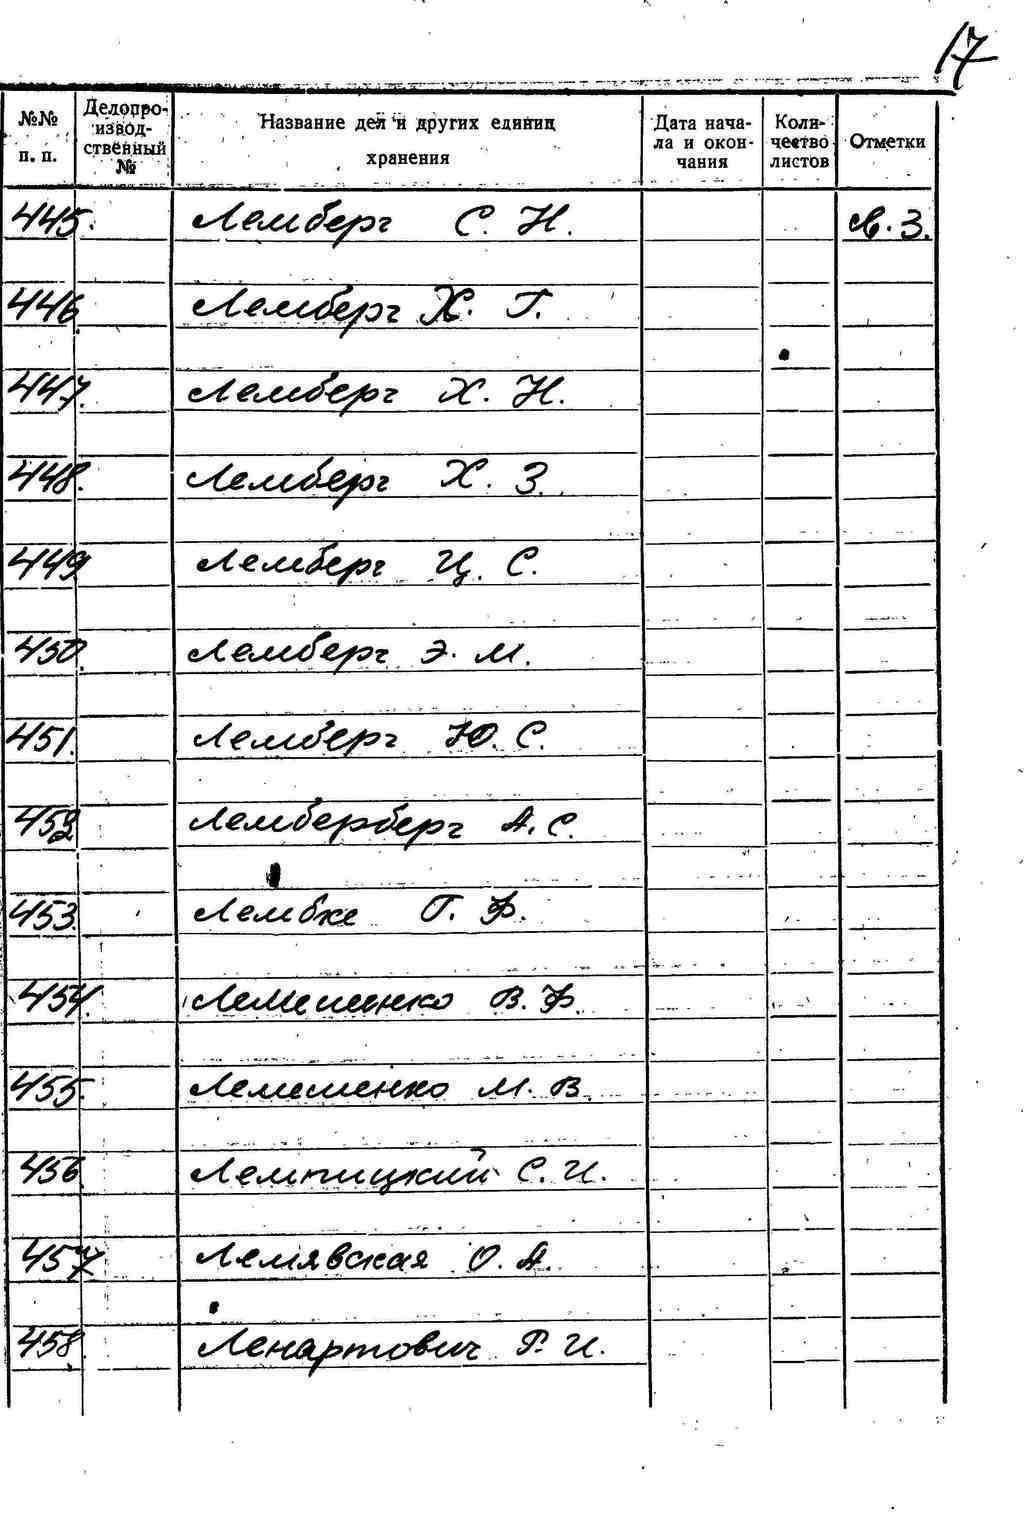 17
№№ п. п. Делопроизводственный № Название дел и других единиц хранения Дата начала и окончания Количество листов Отметки
445. Лемберг С. Н. св. 3.
446. Лемберг Х. Г.
447. Лемберг Х. Н.
448. Лемберг Х. З.
449. Лемберг Ц. С.
450. Лемберг Э. М.
451. Лемберг Ю. С.
452. Лемберберг А. С.
453. Лембке Г. Ф.
454. Лемешенко В. Ф.
455. Лемешенко М. В.
456. Лемпицкий С. И.
457 Лемявская О. А.
458. Ленартович Р. И.